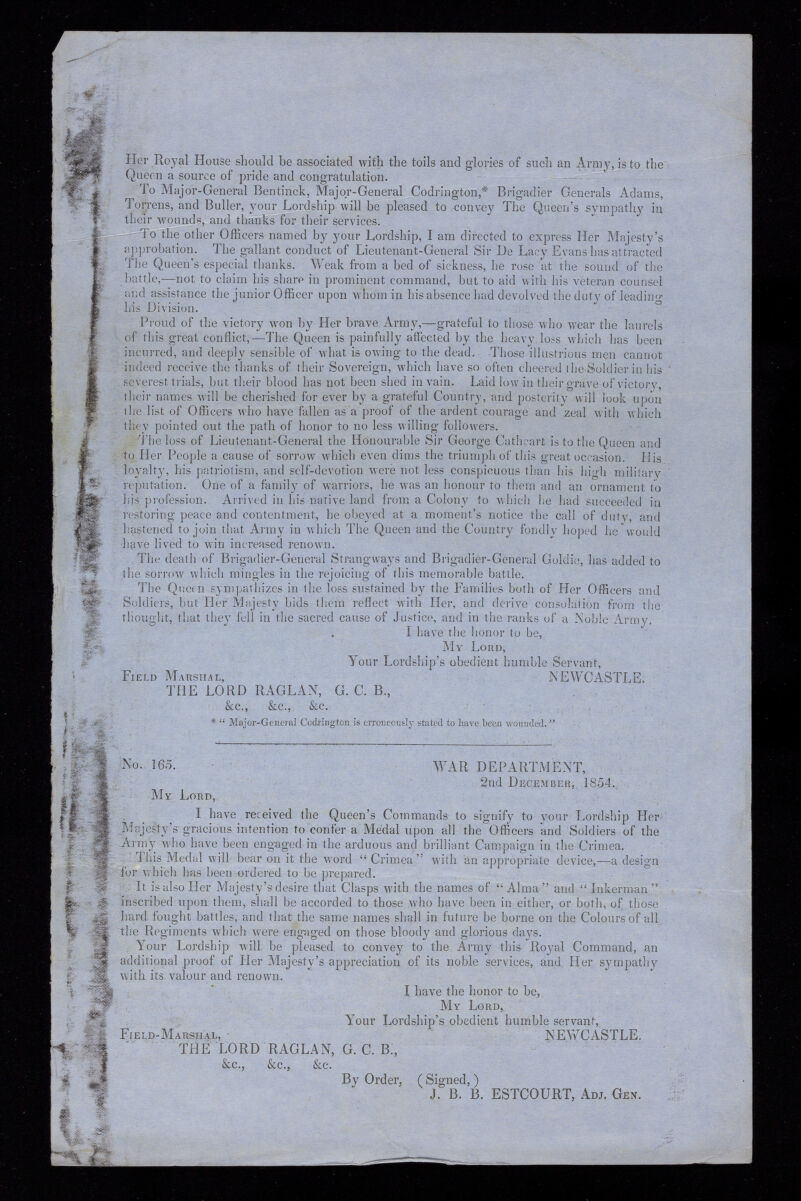 Her Royal House should be associated with the toils and glories of such an Army, is to the
Queen a source of pride and congratulation.
To Major-General Bentinck, Major-General Codrington,* Brigadier Generals Adams,
Torrens, and Buller, your Lordship will be pleased to convey The Queen's sympathy in
their wounds, and thanks for their services.
To the other Officers named by your Lordship, I am directed to express Her Majesty's
approbation. The gallant conduct of Lieutenant-General Sir De Lacy Evans has attracted
The Queen's especial thanks. Weak from a bed of sickness, he rose at the sound of the
battle,—not to claim his share in prominent command, but to aid with his veteran counsel
and assistance the junior Officer upon whom in his absence had devolved the duty of leading
his Division.
Proud of the victory won by Her brave Army,—grateful to those who wear the laurels
of this great conflict,—The Queen is painfully affected by the heavy loss which has been
incurred, and deeply sensible of what is owing to the dead. Those illustrious men cannot
indeed receive the thanks of their Sovereign, which have so often cheered the Soldier in his
severest trials, but their blood has not been shed in vain. Laid low in their grave of victory,
their names will be cherished for ever by a grateful Country, and posterity will look upon
the list of Officers who have fallen as a proof of the ardent courage and zeal with which
they pointed out the path of honor to no less willing followers.
The loss of Lieutenant-General the Honourable Sir George Cathcart is to the Queen and
to Her People a cause of sorrow which even dims the triumph of this great occasion. His
loyalty, his patriotism, and self-devotion were not less conspicuous than his high military
reputation. One of a family of warriors, he was an honour to them and an ornament to
his profession. Arrived in his native land from a Colony to which he had succeeded in
restoring peace and contentment, he obeyed at a moment's notice the call of duty, and
hastened to join that Army in which The Queen and the Country fondly hoped he would
have lived to win increased renown.
The death of Brigadier-General Strangways and Brigadier-General Goldie, has added to
the sorrow which mingles in the rejoicing of this memorable battle.
The Queen sympathizes in the loss sustained by the Families both of Her Officers and
Soldiers, but Her Majesty bids them reflect with Her, and derive consolation from the
thought, that they fell in the sacred cause of Justice, and in the ranks of a Noble Army.
I have the honor to be,
MY LORD,
Your Lordship's obedient humble Servant,
FIELD MARSHAL, NEWCASTLE.
THE LORD RAGLAN, G. C. B.,
&c., &c., &c.
* " Major-General Codrington is erroneously stated to have been wounded. "
No. 165. WAR DEPARTMENT,
2nd DECEMBER, 1854.
MY LORD,
I have received the Queen's Commands to signify to your Lordship Her
Majesty's gracious intention to confer a Medal upon all the Officers and Soldiers of the
Army who have been engaged in the arduous and brilliant Campaign in the Crimea.
This Medal will bear on it the word "Crimea" with an appropriate device,—a design
for which has been ordered to be prepared.
It is also Her Majesty's desire that Clasps with the names of "Alma" and "Inkerman"
inscribed upon them, shall be accorded to those who have been in either, or both, of those
hard fought battles, and that the same names shall in future be borne on the Colours of all
the Regiments which were engaged on those bloody and glorious days.
Your Lordship will be pleased to convey to the Army this Royal Command, an
additional proof of Her Majesty's appreciation of its noble services, and Her sympathy
with its valour and renown.
I have the honor to be,
MY LORD,
Your Lordship's obedient humble servant,
FIELD-MARSHAL, NEWCASTLE.
THE LORD RAGLAN, G. C. B.,
&c., &c., &c.
By Order, (Signed,)
J. B. B. ESTCOURT, ADJ. GEN.